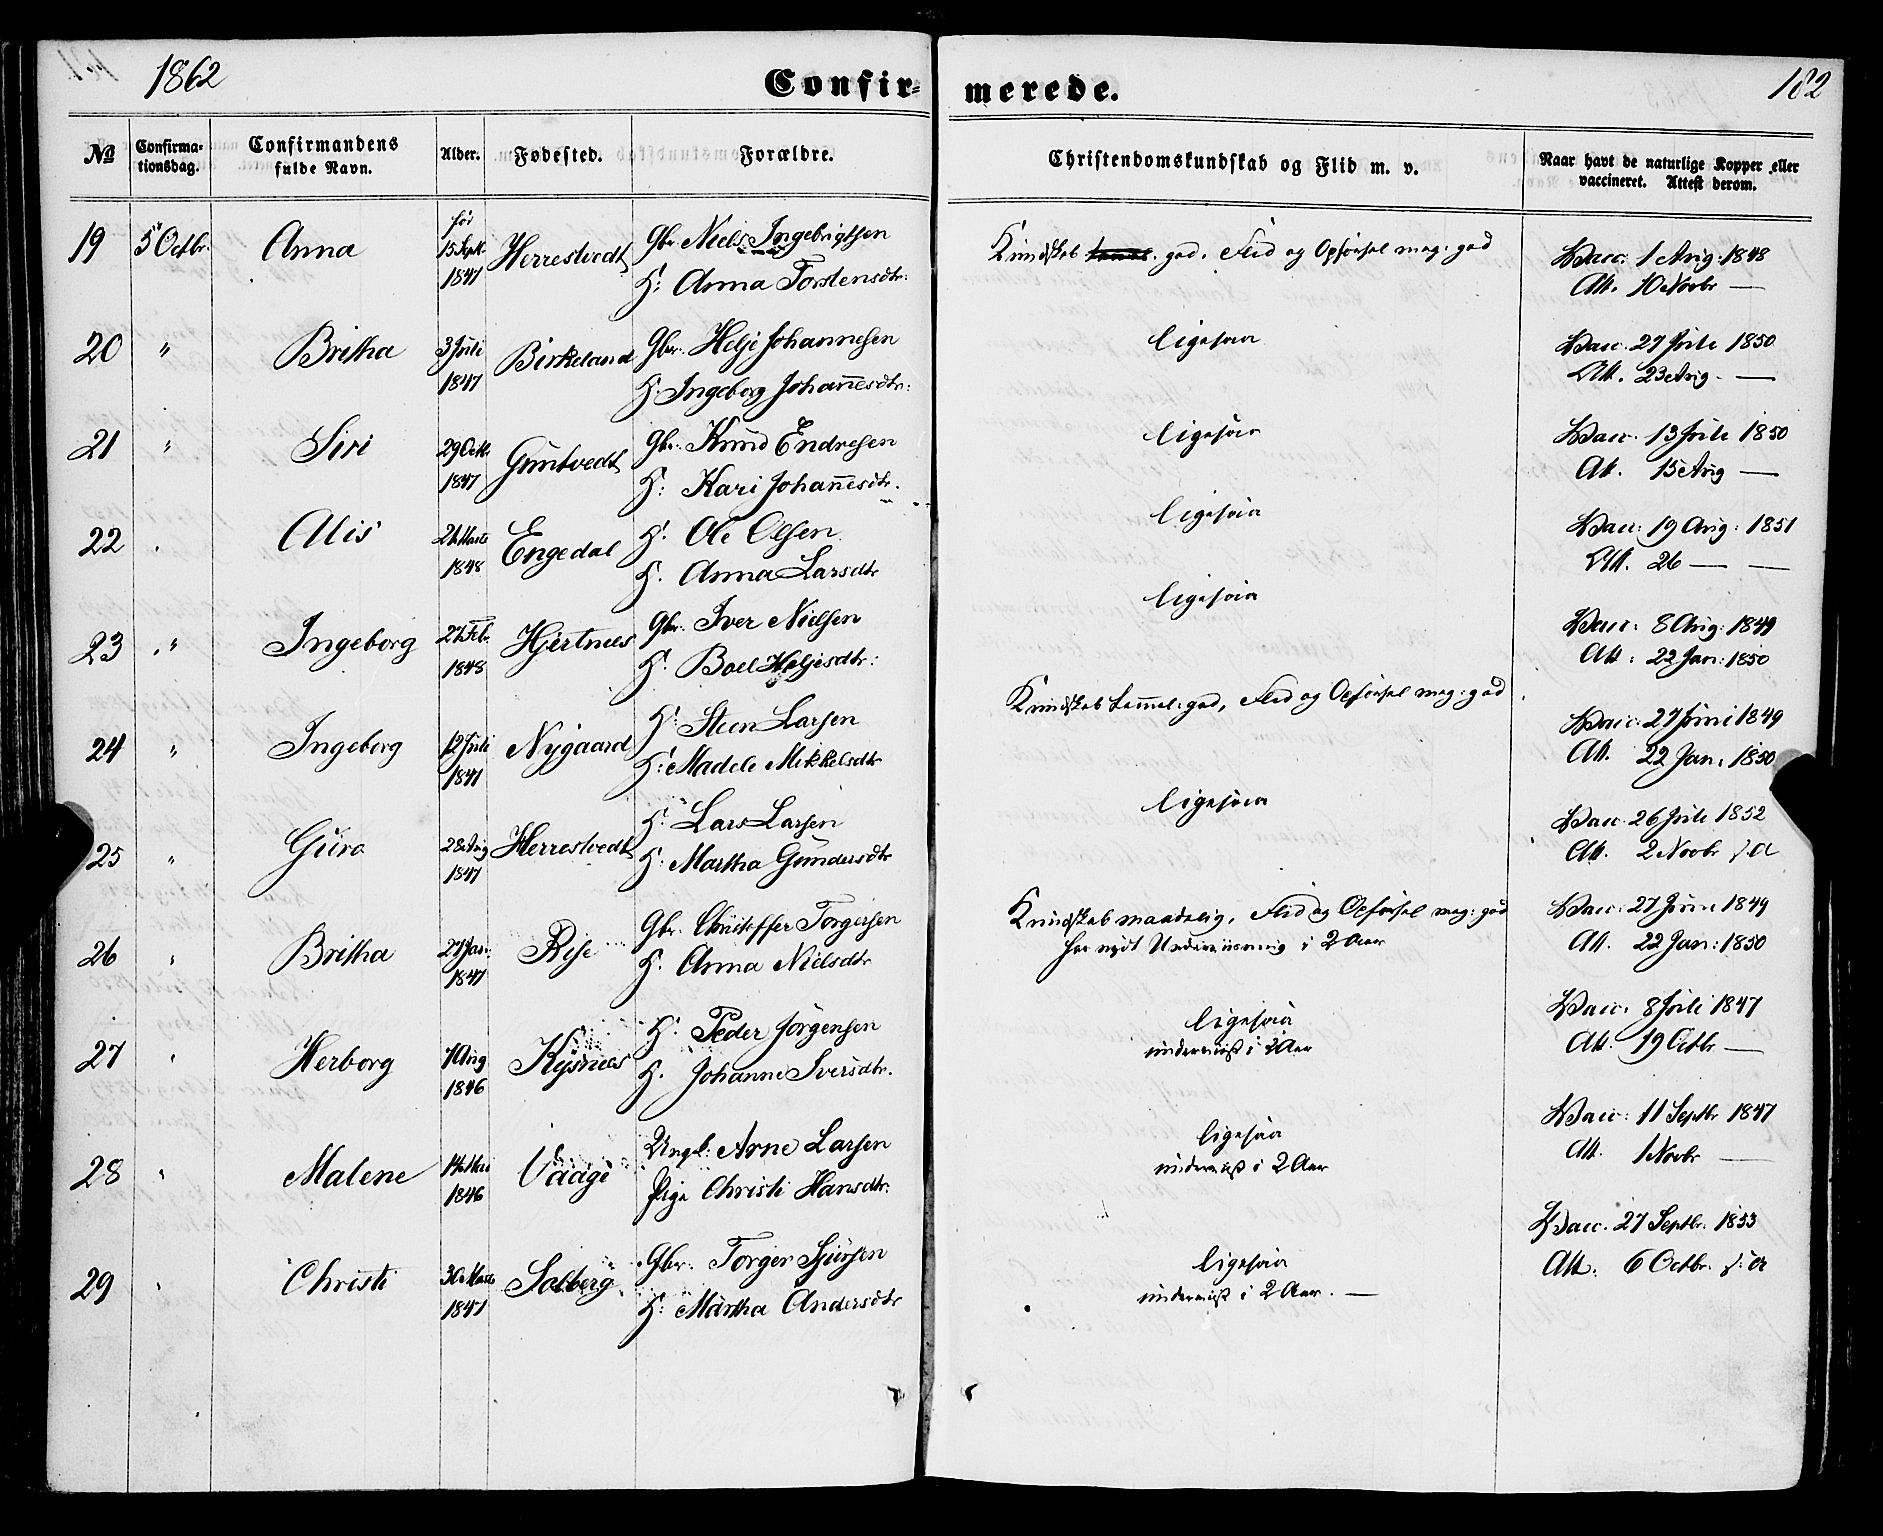 1862
Confir-
merede.
182
№
Confirma-
tionsdag.
Confirmandens
fulde Navn.
Alder.
Fødested.
Forældre.
Christendomskundskab og Flid m. v.
Naar havt de naturlige Kopper eller
vaccineret. Attest derom.
19 5 Octbr. Anna før 15 Sept. 1847 Herrestvedt Gbr. Niels Ingebrigtsen
H: Anna Torstensdtr:
Kundskab god. Flid og Opførsel meg: god
Vacc: 1 Aug: 1848
Att. 10 Novbr —
20 " Britha 3 Juli 1847 Birkeland Gbr. Helje Johannesen
H. Ingeborg Johan̄esdtr:
ligesaa
Vacc. 27 Juli 1850
Att. 23 Aug. —
21 " Siri 29 Octb. 1847 Guntvedt Gbr. Knud Endresen
H: Kari Johan̄esdtr.
ligesaa
Vacc. 13 Juli 1850
Att. 15 Aug —
22 " Alis Marts 1848 Engedal H. Ole Olsen
H. Anna Larsdtr
ligesaa
Vacc: 19 Aug: 1851
Att. 26 — —
23 " Ingeborg 27 Feb. 1848 Hjertnes Gbr. Iver Nielsen
H. Boel Heljesdtr:
ligesaa
Vacc: 8 Aug: 1849
Att: 22 Jan: 1850
24 " Ingeborg 12 Juli 1847 Nygaard H: Steen Larsen
H: Madele Mikkelsdtr
Kundskab tem̄el: god, Flid og Opførsel meg: god
Vacc: 27 Juni 1849
Att. 22 Jan. 1850
25 " Guro 28 Aug 1847 Herrestvedt H. Lars Larsen
H. Martha Gundersdtr
ligesaa
Vacc. 26 Juli 1852
Att. 2 Novbr f. A
26 " Britha 27 Jan: 1847 Rise Gbr. Christoffer Torgersen
H. Anna Nielsdtr
Kundskab maadelig, Flid og Opførsel meg: god
har nydt Underviisning i 2 Aar
Vacc. 27 Juni 1849
Att. 22 Jan: 1850
27 " Herborg 7 Aug 1846 Kysnes H. Peder Jørgensen
H. Johanne Iversdtr.
ligesaa
underviist i 2 Aar
Vacc. 8 Juli 1847
Att. 19 Octbr —
28 " Malene 14 Mai 1846 Vaage Ungk: Arne Larsen
Pige Christi Hansdtr:
ligesaa
underviist i 2 Aar
Vacc: 11 Septbr 1847
Att. 1 Novbr —
29 " Christi 30 Marts 1847 Solberg Gbr: Torger Sjursen
H: Martha Andersdtr
ligesaa
underviist i 2 Aar. —
Vacc. 27 Septbr. 1853
Att: 6 Octbr. f: A